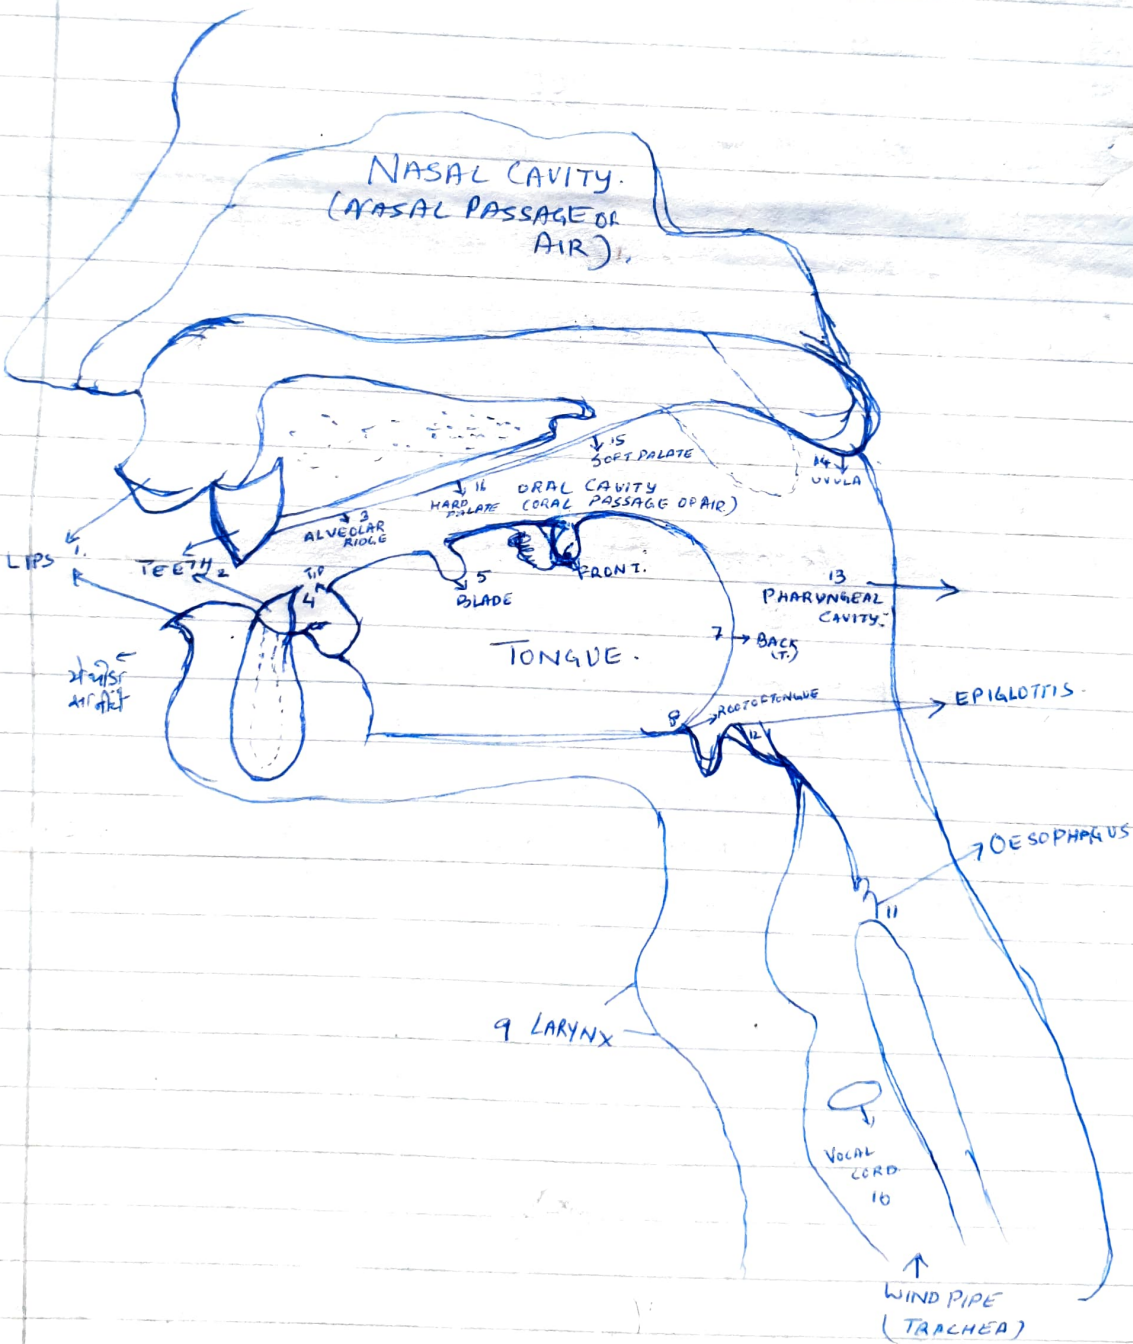 NASAL CAVITY.
(NASAL PASSAGE OR
AIR).
15
SOFT PALATE
14
UVULA
16
HARD
PALATE
ORAL CAVITY
(ORAL PASSAGE OF AIR)
3
ALVEOLAR
RIDGE
LIPS 1.
TEETH 2
TIP
4
5
BLADE
FRONT.
13
PHARYNGEAL
CAVITY.
TONGUE.
7 BACK
(T.)
8 ROOT OF TONGUE
12
EPIGLOTTIS.
OESOPHAGUS
11
9 LARYNX
VOCAL
CORD
10
WIND PIPE
(TRACHEA)